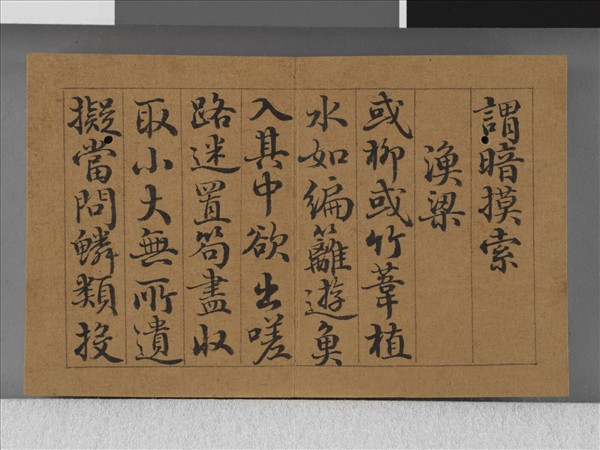 謂暗摸索
漁梁
或柳或竹葦植
水如編籬遊魚
入其中欲出嗟
路迷置笱盡收
取小大無所遺
擬當問鱗類投